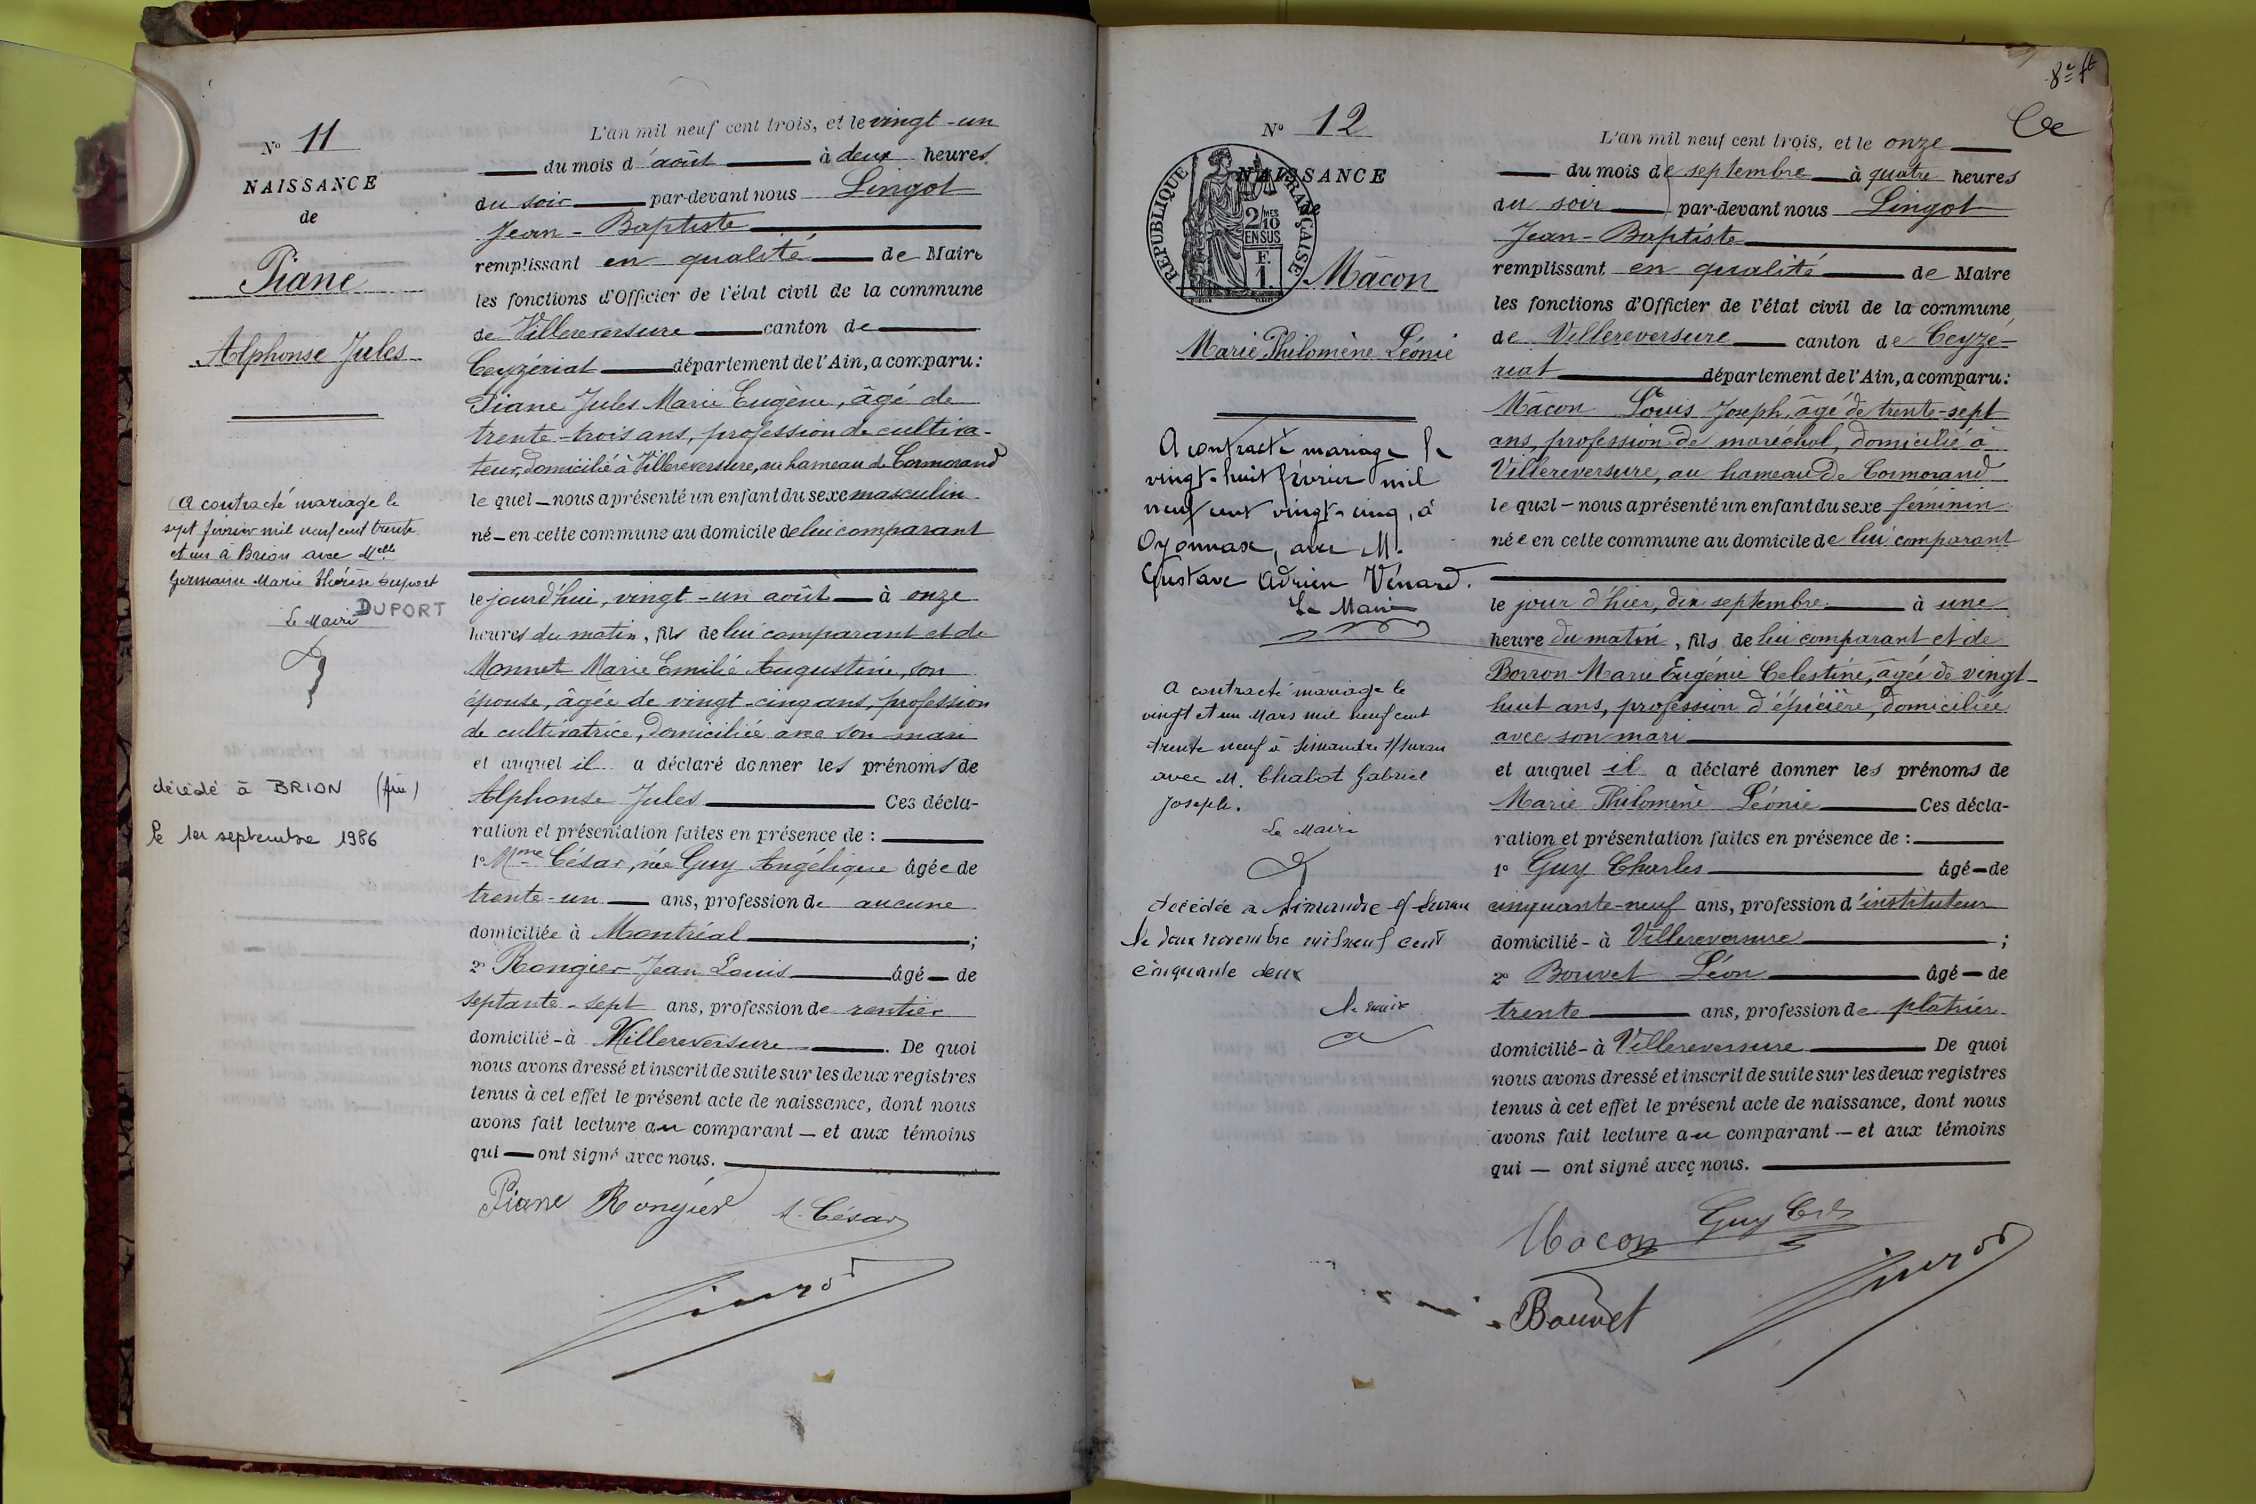 N° 11
NAISSANCE
de
Piane
Alphonse Jules
A contracté mariage le
sept février mil neuf cent trente
et un à Brion avec Melle
Germaine Marie Thérèse Duport
DUPORT
Le Maire
décédé à BRION (Ain)
le 1er septembre 1986
L'an mil neuf cent trois, et le vingt-un
du mois d'août à deux heures
du soir par-devant nous Lingot
Jean-Baptiste
remplissant en qualité de Maire
les fonctions d'Officier de l'état civil de la commune
de Villereversure canton de
Ceyzériat département de l'Ain, a comparu:
Piane Jules Marie Eugène, âgé de
trente-trois ans, profession de cultiva-
teur, domicilié à Villereversure, au hameau de Cormorand
lequel — nous a présenté un enfant du sexe masculin
né — en cette commune au domicile de lui comparant
le jourd'hui, vingt-un août à onze
heures du matin, fils de lui comparant et de
Monnet Marie Emilie Augustine, son
épouse, âgée de vingt-cinq ans, profession
de cultivatrice, domiciliée avec son mari
et auquel il a déclaré donner les prénoms de
Alphonse Jules Ces décla-
ration et présentation faites en présence de :
1° Mme César, née Guy Angélique âgée de
trente-un ans, profession de aucune
domiciliée à Montréal ;
2° Rongier Jean Louis âgé — de
septante-sept ans, profession de rentier
domicilié - à Villereversure. De quoi
nous avons dressé et inscrit de suite sur les deux registres
tenus à cet effet le présent acte de naissance, dont nous
avons fait lecture au comparant — et aux témoins
qui — ont signé avec nous.
Piane Rongier A. César
8e ft
N° 12
NAISSANCE
de
RÉPUBLIQUE FRANÇAISE
2/10 MES
EN SUS
F.
1.
Mâcon
Marie Philomène Léonie
A contracté mariage le
vingt-huit février mil
neuf cent vingt-cinq, à
Oyonnax, avec M.
Gustave Adrien Vénard.
Le Maire
A contracté mariage le
vingt et un Mars mil neuf cent
trente neuf à Simandre s/Suran
avec M. Chabot Gabriel
Joseph.
Le Maire
décédée à Simandre s/ Suran
le deux novembre mil neuf cent
cinquante deux
le maire
L'an mil neuf cent trois, et le onze
du mois de septembre à quatre heures
du soir par-devant nous Lingot
Jean-Baptiste
remplissant en qualité de Maire
les fonctions d'Officier de l'état civil de la commune
de Villereversure canton de Ceyzé-
riat département de l'Ain, a comparu:
Mâcon Louis Joseph, âgé de trente-sept
ans, profession de maréchal, domicilié à
Villereversure, au hameau de Cormorand
lequel — nous a présenté un enfant du sexe féminin
née en cette commune au domicile de lui comparant
le jour d'hier, dix septembre à une
heure du matin, fils de lui comparant et de
Borron Marie Eugénie Celestine, âgée de vingt-
huit ans, profession d'épicière, domiciliée
avec son mari
et auquel il a déclaré donner les prénoms de
Marie Philomène Léonie Ces décla-
ration et présentation faites en présence de :
1° Guy Charles âgé — de
cinquante-neuf ans, profession d'instituteur
domicilié - à Villereversure ;
2° Bouvet Léon âgé — de
trente ans, profession de plâtrier
domicilié - à Villereversure De quoi
nous avons dressé et inscrit de suite sur les deux registres
tenus à cet effet le présent acte de naissance, dont nous
avons fait lecture au comparant — et aux témoins
qui — ont signé avec nous.
Mâcon Guy Ch
Bouvet